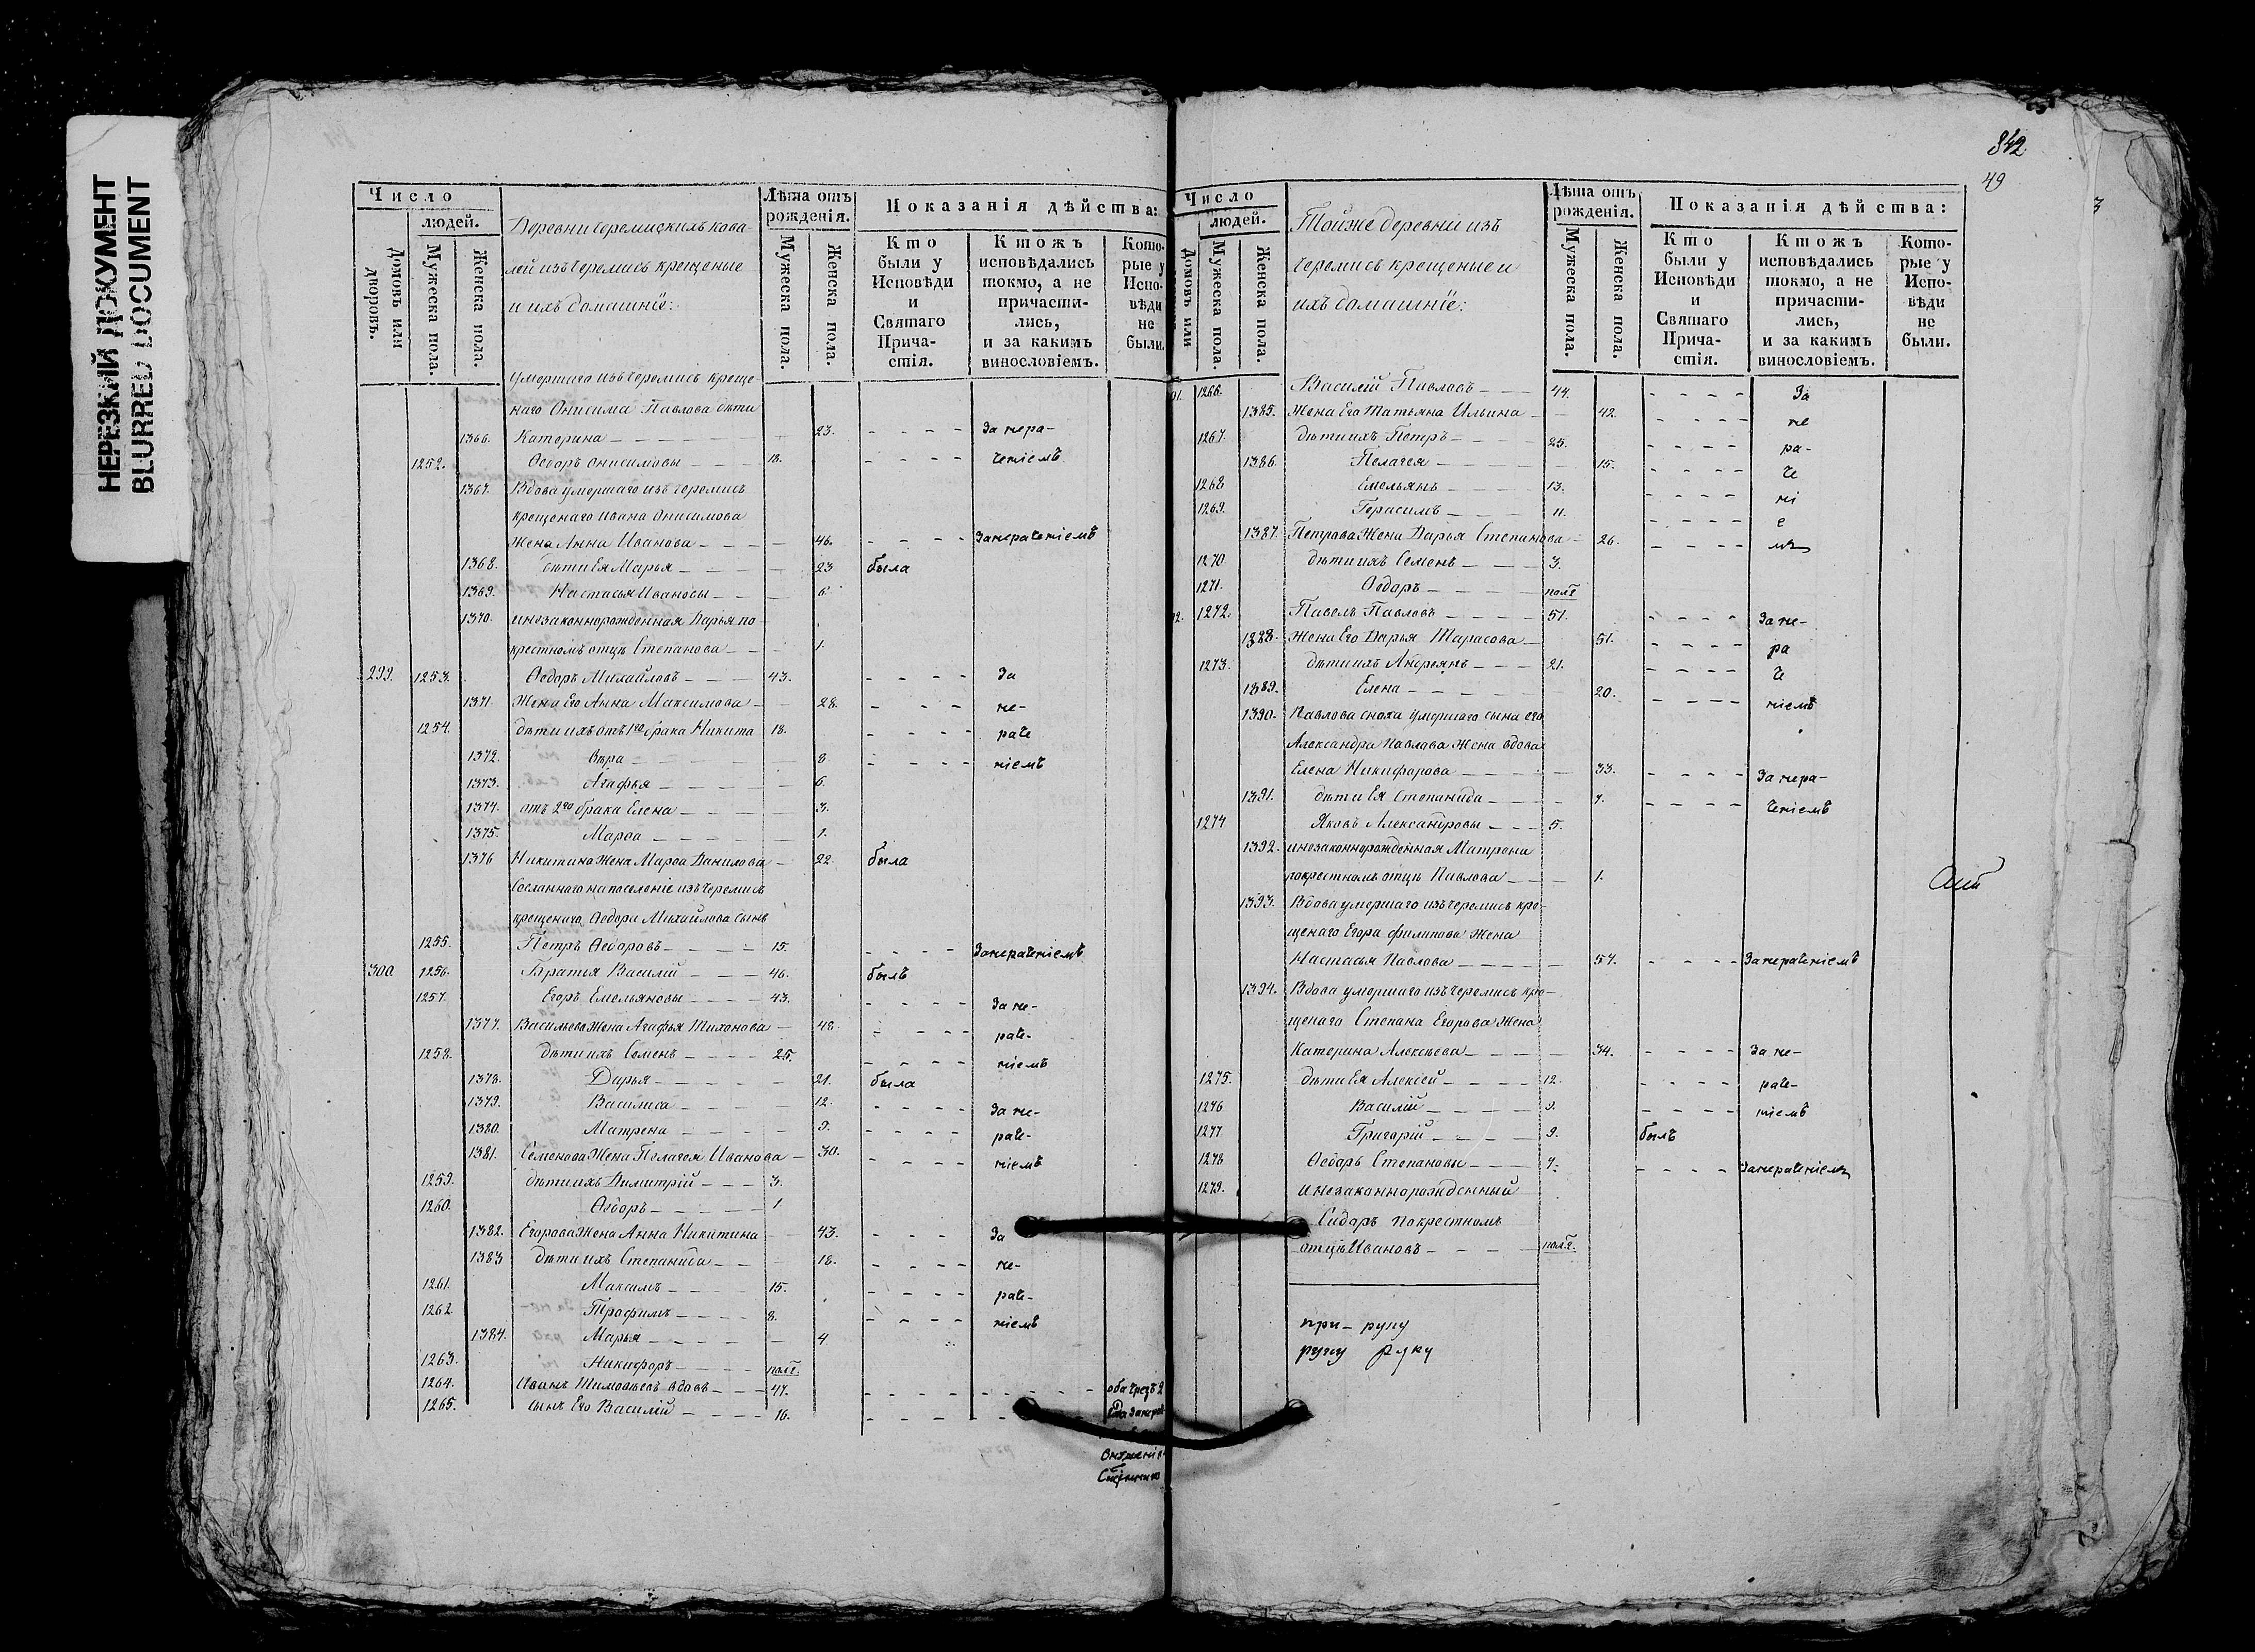 НЕРЕЗКИЙ ДОКУМЕНТ
BLURRED DOCUMENT
Число
людей.
Домовъ или дворовъ.
Мужеска пола.
Женска пола.
Деревни Черемискихъ Кова-
лей изъ Черемисъ крещеные
и ихъ домашнїе:
Лѣта отъ рожденія.
Мужеска пола.
Женска пола.
Показанія дѣйства:
Кто были у Исповѣди и Святаго Причастія.
Ктожъ исповѣдались токмо, а не причастились, и за какимъ винословіемъ.
Которые у Исповѣди не были.
умершаго изъ Черемисъ креще-
наго Онисима Павлова дѣти
1366. Катерина 23. За нера-
1252. Ѳедоръ Онисимовы 18. ченіемъ
1367. Вдова умершаго изъ Черемисъ
крещенаго Ивана Онисимова
жена Анна Иванова 46. За нераченіемъ
1368. дѣти Ея Марья 23 была
1369. Настасья Ивановы 6.
1370. и незаконнорожденная Дарья по
крестномъ отцѣ Степанова 1.
299. 1253. Ѳедоръ Михайловъ 43. За
1371 Жена Его Анна Максимова 28. не-
1254. дѣти ихъ отъ 1го брака Никита 18. раче
1372. Вѣра 8 ніемъ
1373. Агафья 6.
1374. отъ 2го брака Елена 3.
1375. Марѳа 1.
1376 Никитина жена Марѳа Данилова 22 была
Сосланнаго на поселеніе изъ Черемисъ
крещенаго Ѳедора Михайлова сынъ
1255. Петръ Ѳедоровъ 15. За нераченіемъ
300 1256. Братья Василій 46. былъ
1257. Егоръ Емельяновы 43. За не-
1377. Васильева жена Агафья Тихонова 48. раче-
1258. дѣти ихъ Семенъ 25. ніемъ
1378. Дарья 21. была
1379. Василиса 12. За не-
1380. Матрена 9. раче-
1381. Семенова жена Пелагея Иванова 30. ніемъ
1259. дѣти ихъ Димитрій 3.
1260. Ѳедоръ 1
1382. Егорова жена Анна Никитина 43. За
1383 дѣти ихъ Степанида 18. не-
1261. Максимъ 15. раче-
1262. Трофимъ 8. ніемъ
1384. Марья 4
1263. Никифоръ пол г.
1264. Иванъ Тимофѣевъ вдовъ 47. оба чрезъ 2
1265. сынъ Его Василій 16.
842
49
3
Число
людей.
Домовъ или
Мужеска пола.
Женска пола.
Тойже деревни изъ
Черемисъ крещеные и
ихъ домашнїе:
Лѣта отъ рожденія.
Мужеска пола.
Женска пола.
Показанія дѣйства:
Кто были у Исповѣди и Святаго Причастія.
Ктожъ исповѣдались токмо, а не причастились, и за какимъ винословіемъ.
Которые у Исповѣди не были.
1266. Василій Павловъ 44. За
1385. Жена Его Татьяна Ильина 42. не
1267. дѣти ихъ Петръ 25. ра-
1386. Пелагея 15. че
1268 Емельянъ 13. ні
1269. Герасимъ 11. е
1387. Петрова жена Дарья Степанова 26. мъ
1270 дѣти ихъ Семенъ 3.
1271. Ѳедоръ пол г
1272. Павелъ Павловъ 51. За не-
1388. Жена Его Дарья Тарасова 51. ра
1273. дѣти ихъ Андреянъ 21. че
1389. Елена 20. ніемъ
1390. Павлова сноха умершаго сына его
Александра Павлова жена вдова
Елена Никифорова 33. За нера-
1391. дѣти Ея Степанида 7. ченіемъ
1274 Яковъ Александровы 5.
1392. и незаконнорожденная Матрена
покрестномъ отцѣ Павлова 1.
1393. Вдова умершаго изъ Черемисъ кре-
щенаго Егора Филипова жена
Настасья Павлова 57. За нераченіемъ
1394. Вдова умершаго изъ Черемисъ кре-
щенаго Степана Егорова жена
Катерина Алексѣева 34. За не-
1275. дѣти Ея Алексей 12. раче-
1276 Василій 9. ніемъ
1277 Григорій 9. былъ
1278 Ѳедоръ Степановы 7. За нераченіемъ
1279. и незаконнорожденный
Сидоръ покрестномъ
отцѣ Ивановъ пол г.